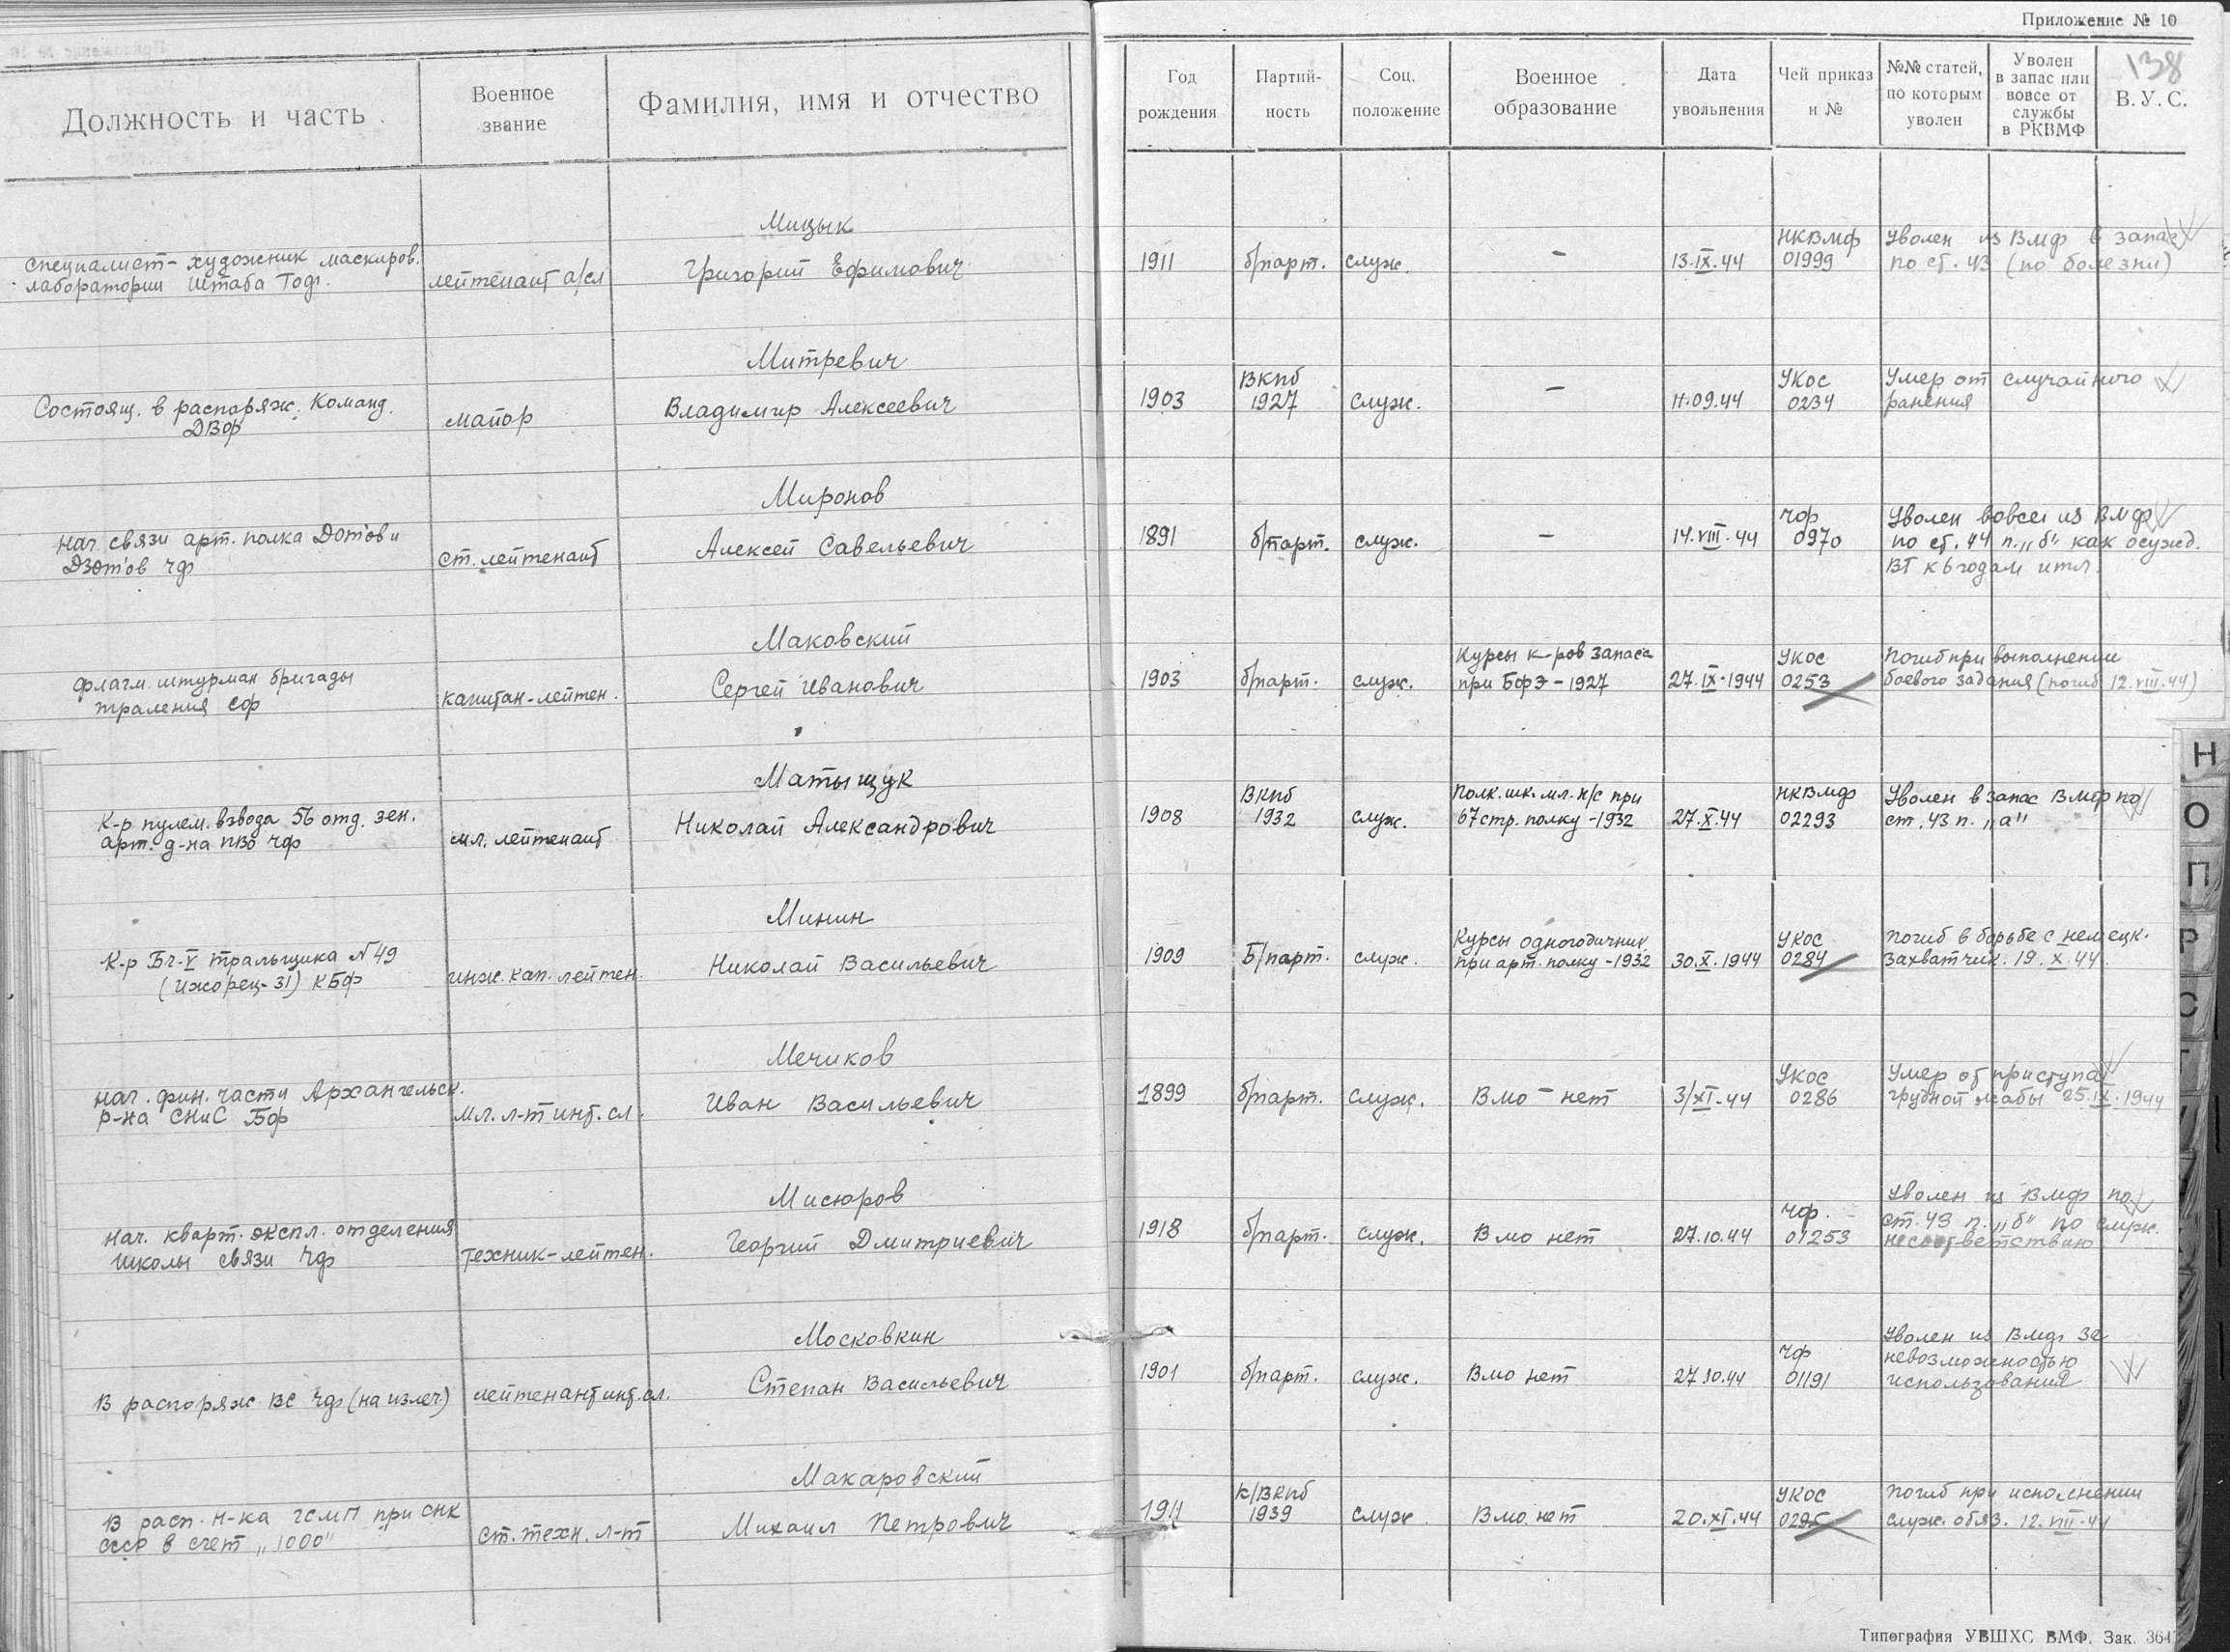 Приложение № 10
138
Должность и часть
Военное
звание
Фамилия, имя и отчество
Год
рождения
Партий-
ность
Соц.
положение
Военное
образование
Дата
увольнения
Чей приказ
и №
№№ статей,
по которым
уволен
Уволен
в запас или
вовсе от
службы
в РКВМФ
В. У. С.
специалист-художник маскиров.
лаборатории штаба Тоф.
лейтенант а/сл
Мицык
Григорий Ефимович
1911
б/парт.
служ.
—
13.IX.44
НКВМФ
01999
Уволен из ВМФ в запас
по ст. 43 (по болезни)
Состоящ. в распоряж. Команд.
ДВФ
майор
Митревич
Владимир Алексеевич
1903
ВКПб
1927
служ.
—
11.09.44
УКОС
0234
Умер от случайного
ранения
Нач. связи арт. полка Дотов и
Дзотов ЧФ
ст. лейтенант
Миронов
Алексей Савельевич
1891
б/парт.
служ.
—
14.VIII.44
ЧФ
0970
Уволен вовсе из ВМФ
по ст. 44 п. „б" как осужд.
ВТ к 6 годам итл.
Флагм. штурман бригады
траления СФ
капитан-лейтен.
Маковский
Сергей Иванович
1903
б/парт.
служ.
Курсы к-ров запаса
при БФЭ - 1927
27.IX-1944
УКОС
0253
Погиб при выполнении
боевого задания (погиб 12.VIII.44)
К-р пулем. взвода 56 отд. зен.
арт. д-на ПВО ЧФ
мл. лейтенант
Матыщук
Николай Александрович
1908
ВКПб
1932
служ.
Полк. шк. мл. н/с при
67 стр. полку - 1932
27.X.44
НКВМФ
02293
Уволен в запас ВМФ по
ст. 43 п. „а"
К-р БЧ-V тральщика №49
(Ижорец-31) КБФ
инж. кап. лейтен.
Минин
Николай Васильевич
1909
Б/парт.
служ.
Курсы одногодичник.
при арт. полку - 1932
30.X.1944
УКОС
0284
Погиб в борьбе с немецк.
захватчик. 19.X.44.
Нач. фин. части Архангельск.
р-на СНиС БФ
мл. л-т инт. сл.
Мечиков
Иван Васильевич
1899
б/парт.
служ.
ВМО — нет
3/XI-44
УКОС
0286
Умер от приступа
грудной жабы 25.IX.1944
Нач. кварт. экспл. отделения
школы связи ЧФ
техник-лейтен.
Мисюров
Георгий Дмитриевич
1918
б/парт.
служ.
ВМО нет
27.10.44
ЧФ.
01253
Уволен из ВМФ по
ст. 43 п. „б" по служ.
несоответствию
В распоряж ВС ЧФ (на излеч.)
лейтенант инт. сл.
Московкин
Степан Васильевич
1901
б/парт.
служ.
ВМО нет
27.10.44
ЧФ
01191
Уволен из ВМФ за
невозможностью
использования
В расп. Н-ка ГСМП при СНК
СССР в счет „1000"
ст. техн. л-т
Макаровский
Михаил Петрович
1911
к/ВКПб
1939
служ.
ВМО нет
20.XI.44
УКОС
0295
Погиб при исполнении
служ. обяз. 12.VIII.44
Н
О
П
Р
С
Т
Типография УВШХС ВМФ. Зак. 364